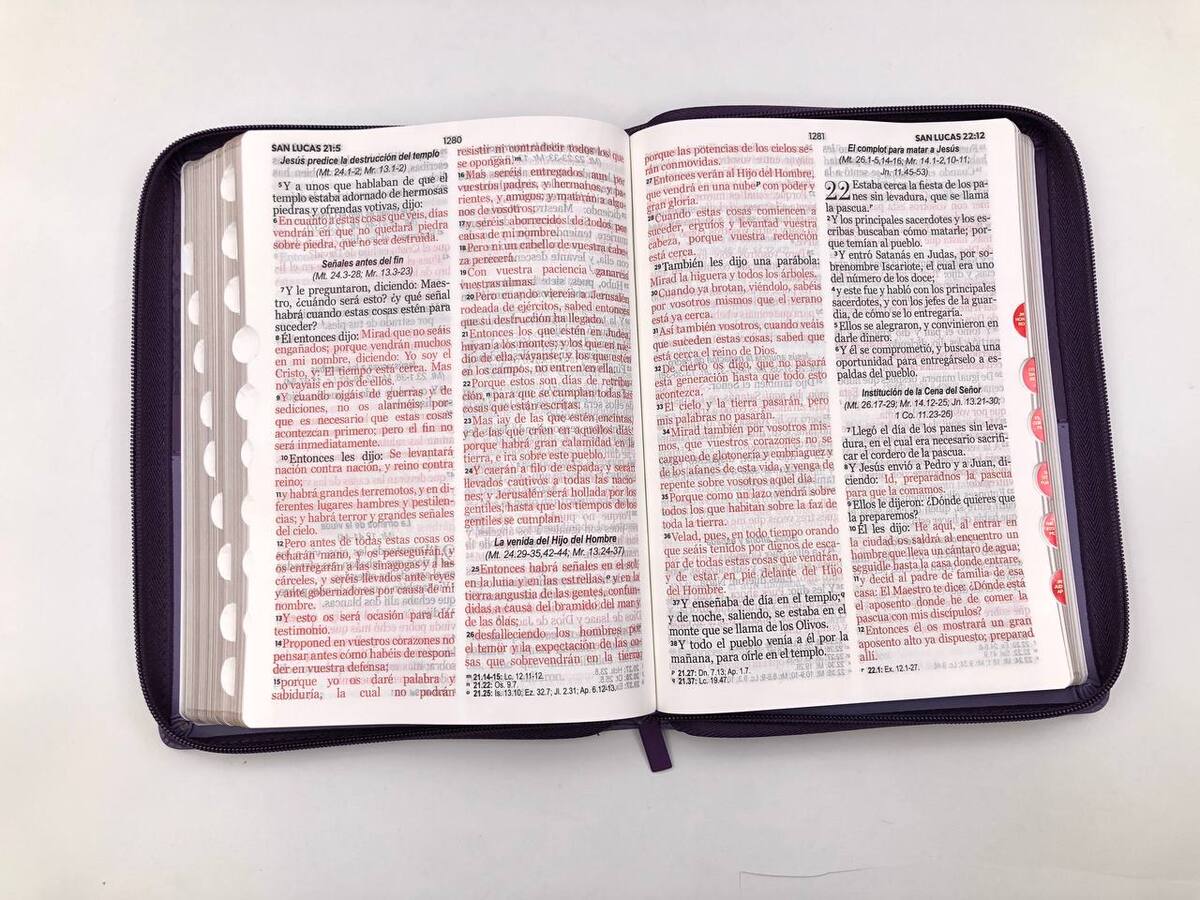 SAN LUCAS 21:5
1280
Jesús predice la destrucción del templo
(Mt. 24.1-2; Mr. 13.1-2)
5Y a unos que hablaban de que el
templo estaba adornado de hermosas
piedras y ofrendas votivas, dijo:
6En cuanto a estas cosas que veis, días
vendrán en que no quedará piedra
sobre piedra, que no sea destruida.
Señales antes del fin
(Mt. 24.3-28; Mr. 13.3-23)
7Y le preguntaron, diciendo: Maes-
tro, ¿cuándo será esto? ¿y qué señal
habrá cuando estas cosas estén para
suceder?
8Él entonces dijo: Mirad que no seáis
engañados; porque vendrán muchos
en mi nombre, diciendo: Yo soy el
Cristo, y: El tiempo está cerca. Mas
no vayáis en pos de ellos.
9Y cuando oigáis de guerras y de
sediciones, no os alarméis; por-
que es necesario que estas cosas
acontezcan primero; pero el fin no
será inmediatamente.
10Entonces les dijo: Se levantará
nación contra nación, y reino contra
reino;
11y habrá grandes terremotos, y en di-
ferentes lugares hambres y pestilen-
cias; y habrá terror y grandes señales
del cielo.
12Pero antes de todas estas cosas os
echarán mano, y os perseguirán, y
os entregarán a las sinagogas y a las
cárceles, y seréis llevados ante reyes
y ante gobernadores por causa de mi
nombre.
13Y esto os será ocasión para dar
testimonio.
14Proponed en vuestros corazones no
pensar antes cómo habéis de respon-
der en vuestra defensa;
15porque yo os daré palabra y
sabiduría, la cual no podrán
resistir ni contradecir todos los que
se opongan.m
16Mas seréis entregados aun por
vuestros padres, y hermanos, y pa-
rientes, y amigos; y matarán a algu-
nos de vosotros;
17y seréis aborrecidos de todos por
causa de mi nombre.
18Pero ni un cabello de vuestra cabe-
za perecerá.
19Con vuestra paciencia ganaréis
vuestras almas.
20Pero cuando viereis a Jerusalén
rodeada de ejércitos, sabed entonces
que su destrucción ha llegado.
21Entonces los que estén en Judea,
huyan a los montes; y los que en me-
dio de ella, váyanse; y los que estén
en los campos, no entren en ella.
22Porque estos son días de retribu-
ción,n para que se cumplan todas las
cosas que están escritas.
23Mas ¡ay de las que estén encintas,
y de las que críen en aquellos días!
porque habrá gran calamidad en la
tierra, e ira sobre este pueblo.
24Y caerán a filo de espada, y serán
llevados cautivos a todas las nacio-
nes; y Jerusalén será hollada por los
gentiles, hasta que los tiempos de los
gentiles se cumplan.
La venida del Hijo del Hombre
(Mt. 24.29-35,42-44; Mr. 13.24-37)
25Entonces habrá señales en el sol,
en la luna y en las estrellas,o y en la
tierra angustia de las gentes, confun-
didas a causa del bramido del mar y
de las olas;
26desfalleciendo los hombres por
el temor y la expectación de las co-
sas que sobrevendrán en la tierra;
m 21.14-15: Lc. 12.11-12.
n 21.22: Os. 9.7.
o 21.25: Is. 13.10; Ez. 32.7; Jl. 2.31; Ap. 6.12-13.
1281
SAN LUCAS 22:12
porque las potencias de los cielos se-
rán conmovidas.
27Entonces verán al Hijo del Hombre,
que vendrá en una nubep con poder y
gran gloria.
28Cuando estas cosas comiencen a
suceder, erguíos y levantad vuestra
cabeza, porque vuestra redención
está cerca.
29También les dijo una parábola:
Mirad la higuera y todos los árboles.
30Cuando ya brotan, viéndolo, sabéis
por vosotros mismos que el verano
está ya cerca.
31Así también vosotros, cuando veáis
que suceden estas cosas, sabed que
está cerca el reino de Dios.
32De cierto os digo, que no pasará
esta generación hasta que todo esto
acontezca.
33El cielo y la tierra pasarán, pero
mis palabras no pasarán.
34Mirad también por vosotros mis-
mos, que vuestros corazones no se
carguen de glotonería y embriaguez y
de los afanes de esta vida, y venga de
repente sobre vosotros aquel día.
35Porque como un lazo vendrá sobre
todos los que habitan sobre la faz de
toda la tierra.
36Velad, pues, en todo tiempo orando
que seáis tenidos por dignos de esca-
par de todas estas cosas que vendrán,
y de estar en pie delante del Hijo
del Hombre.
37Y enseñaba de día en el templo;q
y de noche, saliendo, se estaba en el
monte que se llama de los Olivos.
38Y todo el pueblo venía a él por la
mañana, para oírle en el templo.
p 21.27: Dn. 7.13; Ap. 1.7.
q 21.37: Lc. 19.47.
El complot para matar a Jesús
(Mt. 26.1-5,14-16; Mr. 14.1-2,10-11;
Jn. 11.45-53)
22 Estaba cerca la fiesta de los pa-
nes sin levadura, que se llama
la pascua.r
2Y los principales sacerdotes y los es-
cribas buscaban cómo matarle; por-
que temían al pueblo.
3Y entró Satanás en Judas, por so-
brenombre Iscariote, el cual era uno
del número de los doce;
4y este fue y habló con los principales
sacerdotes, y con los jefes de la guar-
dia, de cómo se lo entregaría.
5Ellos se alegraron, y convinieron en
darle dinero.
6Y él se comprometió, y buscaba una
oportunidad para entregárselo a es-
paldas del pueblo.
Institución de la Cena del Señor
(Mt. 26.17-29; Mr. 14.12-25; Jn. 13.21-30;
1 Co. 11.23-26)
7Llegó el día de los panes sin leva-
dura, en el cual era necesario sacrifi-
car el cordero de la pascua.
8Y Jesús envió a Pedro y a Juan, di-
ciendo: Id, preparadnos la pascua
para que la comamos.
9Ellos le dijeron: ¿Dónde quieres que
la preparemos?
10Él les dijo: He aquí, al entrar en
la ciudad os saldrá al encuentro un
hombre que lleva un cántaro de agua;
seguidle hasta la casa donde entrare,
11y decid al padre de familia de esa
casa: El Maestro te dice: ¿Dónde está
el aposento donde he de comer la
pascua con mis discípulos?
12Entonces él os mostrará un gran
aposento alto ya dispuesto; preparad
allí.
r 22.1: Ex. 12.1-27.